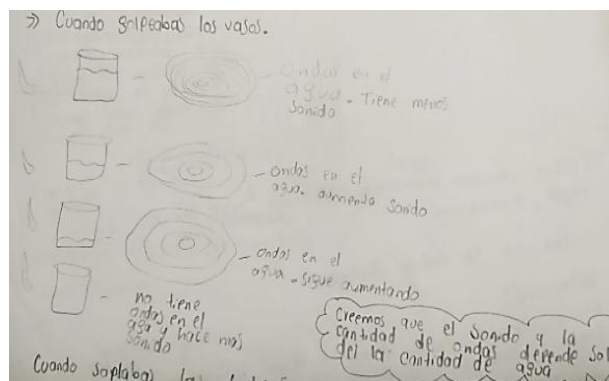 ⇒ Cuando golpeabas los vasos.
- ondas en el
agua - Tiene menos
sonido
- ondas en el
agua. aumenta sonido
- ondas en el
agua - sigue aumentando
- no tiene
ondas en el
agua y hace mas
sonido
Creemos que el sonido y la
cantidad de ondas depende sol
del la cantidad de agua
Cuando soplabas